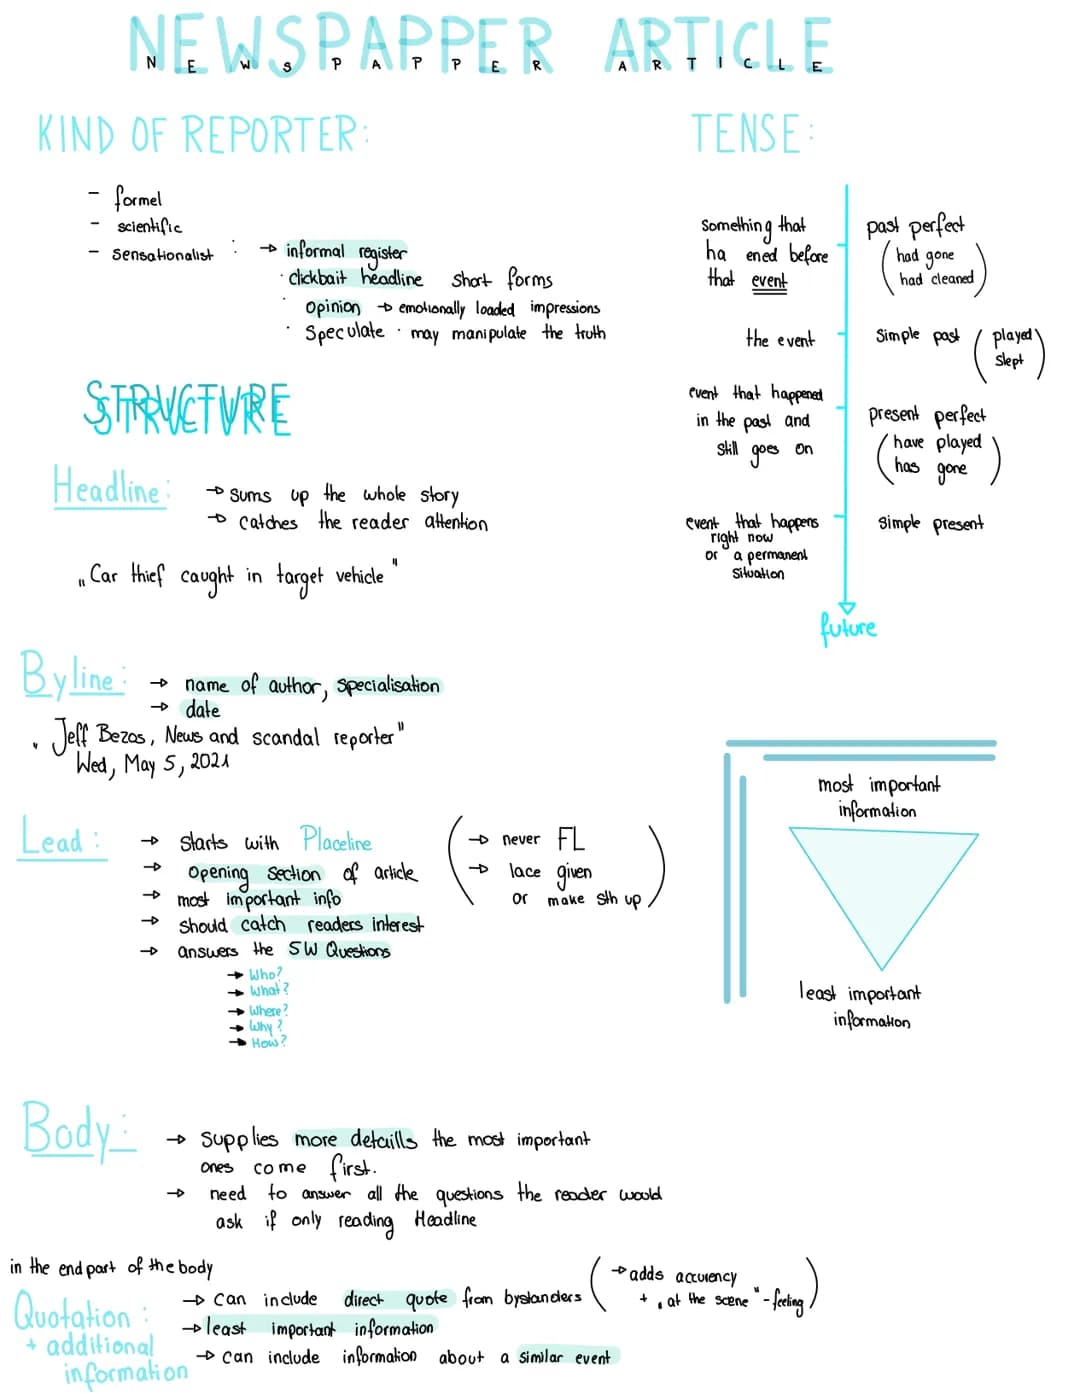 NEWSPAPPER ARTICLE
N E W S P A P P E R A R T I C L E
KIND OF REPORTER:
- formel
- scientific
- sensationalist : → informal register
· clickbait headline short forms
· opinion → emotionally loaded impressions
· Speculate · may manipulate the truth
TENSE:
Something that
ha ened before
that event
past perfect
(had gone
had cleaned)
the event
Simple past (played
slept)
event that happened
in the past and
still goes on
present perfect
(have played
has gone)
event that happens
right now
or a permanent
situation
simple present
future
STRUCTURE
STRUCTURE
Headline:
→ sums up the whole story
→ catches the reader attention
„Car thief caught in target vehicle"
Byline:
→ name of author, specialisation
→ date
„Jeff Bezos, News and scandal reporter"
Wed, May 5, 2021
Lead:
→ starts with Placeline
→ opening section of article
→ most important info
→ should catch readers interest
→ answers the 5W Questions
→ Who?
→ What?
→ Where?
→ Why?
→ How?
(→ never FL
→ lace given
or make sth up)
most important
information
least important
information
Body:
→ supplies more detaills the most important
ones come first.
→ need to answer all the questions the reader would
ask if only reading Headline
in the end part of the body
Quotation:
+ additional
information
→ can include direct quote from bystanders
(→ adds accurency
+ „at the scene"-feeling)
→ least important information
→ can include information about a similar event